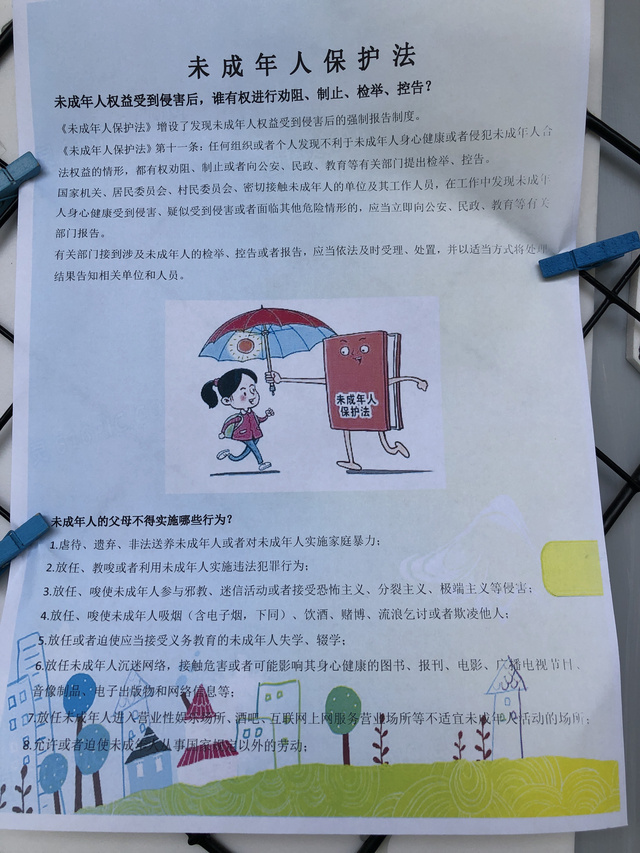 未成年人保护法
未成年人权益受到侵害后，谁有权进行劝阻、制止、检举、控告？
《未成年人保护法》增设了发现未成年人权益受到侵害后的强制报告制度。
《未成年人保护法》第十一条：任何组织或者个人发现不利于未成年人身心健康或者侵犯未成年人合
法权益的情形，都有权劝阻、制止或者向公安、民政、教育等有关部门提出检举、控告。
国家机关、居民委员会、村民委员会、密切接触未成年人的单位及其工作人员，在工作中发现未成年
人身心健康受到侵害、疑似受到侵害或者面临其他危险情形的，应当立即向公安、民政、教育等有关
部门报告。
有关部门接到涉及未成年人的检举、控告或者报告，应当依法及时受理、处置，并以适当方式将处理
结果告知相关单位和人员。
未成年人
保护法
未成年人的父母不得实施哪些行为？
1.虐待、遗弃、非法送养未成年人或者对未成年人实施家庭暴力；
2.放任、教唆或者利用未成年人实施违法犯罪行为；
3.放任、唆使未成年人参与邪教、迷信活动或者接受恐怖主义、分裂主义、极端主义等侵害；
4.放任、唆使未成年人吸烟（含电子烟，下同）、饮酒、赌博、流浪乞讨或者欺凌他人；
5.放任或者迫使应当接受义务教育的未成年人失学、辍学；
6.放任未成年人沉迷网络，接触危害或者可能影响其身心健康的图书、报刊、电影、广播电视节目、
音像制品、电子出版物和网络信息等；
7.放任未成年人进入营业性娱乐场所、酒吧、互联网上网服务营业场所等不适宜未成年人活动的场所；
8.允许或者迫使未成年人从事国家规定以外的劳动；